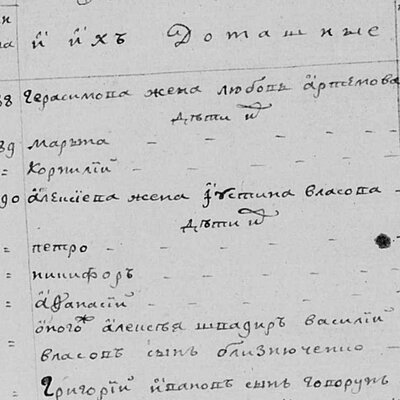 и ихъ Домашные
88 Герасимова жена любовь артемова
дѣти и̂
89 марѳа
= Корнилій
90 алеѯіева жена іустина власова
дѣти и̂
= петро
= никифоръ
= аѳанасій
оного алеѯѣя швагиръ василій
= власовъ сынъ близнюченко
= Григорій ивановъ сынъ